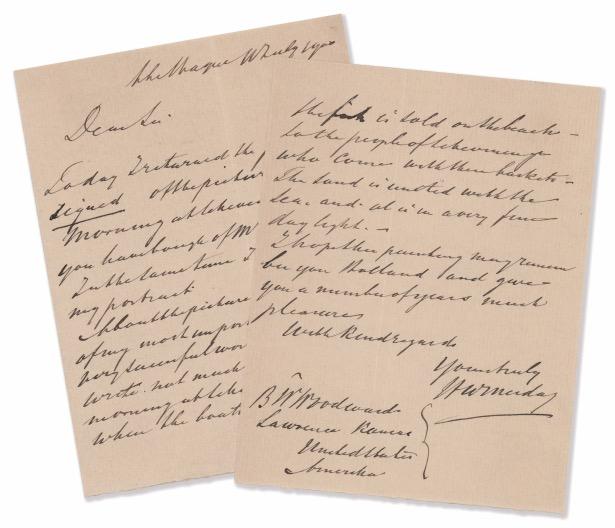 the Hague July 1900
Dear Sir.
To day I returned the
signed of the pictur
Morning at Scheve
you have bough of M
In the same time I
my portrait
About the picture
of my most impor
very
write. not much
morning at Sche
when the boats
the fish is sold on the beach –
to the people of Scheveninge
who come with their baskets –
The sand is united with the
sea. and al is in a very fine
day light. –
I hope the painting may remem
ber you Holland and give
you a number of years much
pleasures
With kind regards
Yours truly
HWMesdag
B. W Woodward
Lawrence Kansas
United States
Amerika